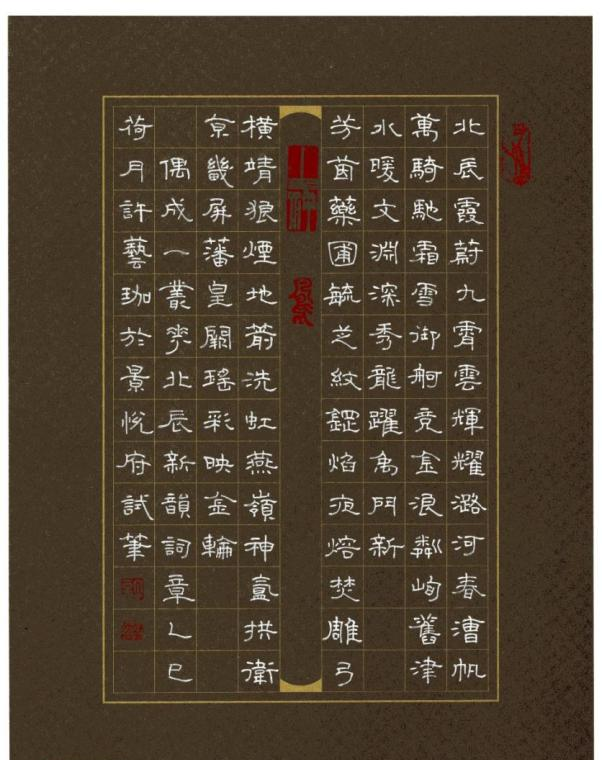 北辰霞蔚九霄雲輝耀潞河春漕帆
萬騎馳霜雪御舸竞金浪粼峋舊津
水暖文淵深秀龍躍禹門新
芳茵藥圃毓芝紋焰夜熔焚雕弓
橫靖狼煙地箭洗虹燕嶺神拱衛
京畿屏藩皇闕瑤彩映金輪
偶成一叢花北辰新韻詞章乙巳
荷月許藝珈於景悅府試筆